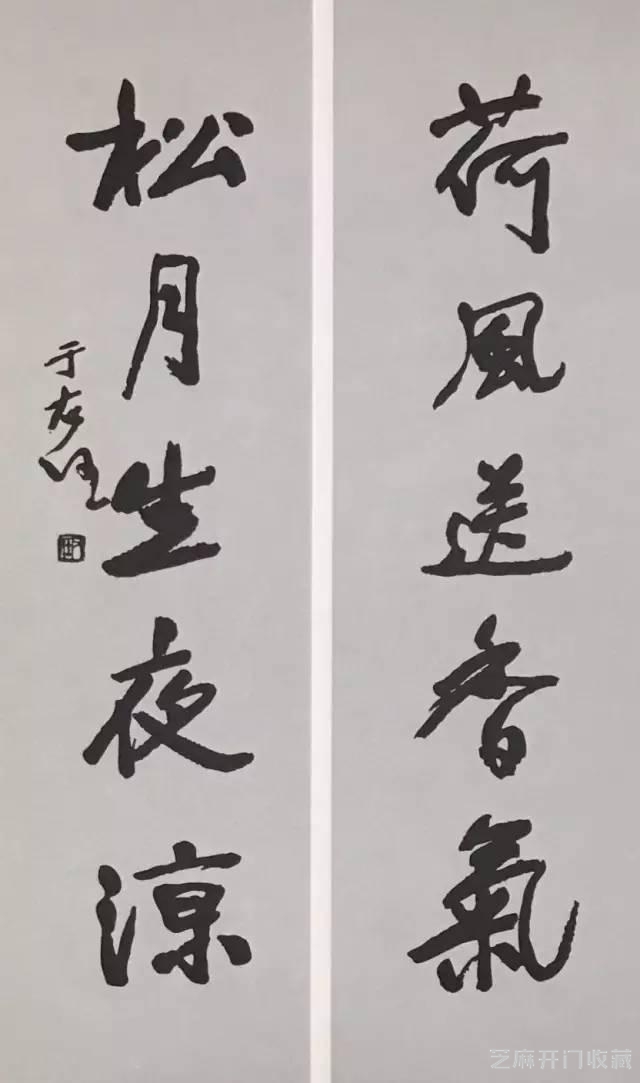 荷風送香氣
松月生夜涼
于右任
芝麻开门收藏